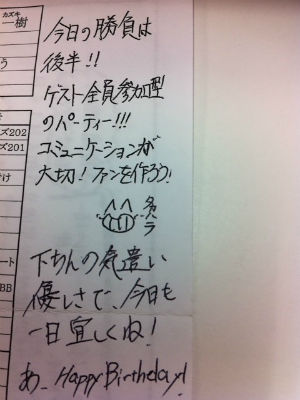 カズキ
一樹
今日の勝負は
後半!!
ゲスト全員参加型
のパーティー!!!
コミュニケーションが
大切!ファンを作ろう!
下ちんの気遣い
優しさで、今日も
一日宜しくね!
あ、Happy Birthday!
う
ズ202
ズ201
け
ート
BB